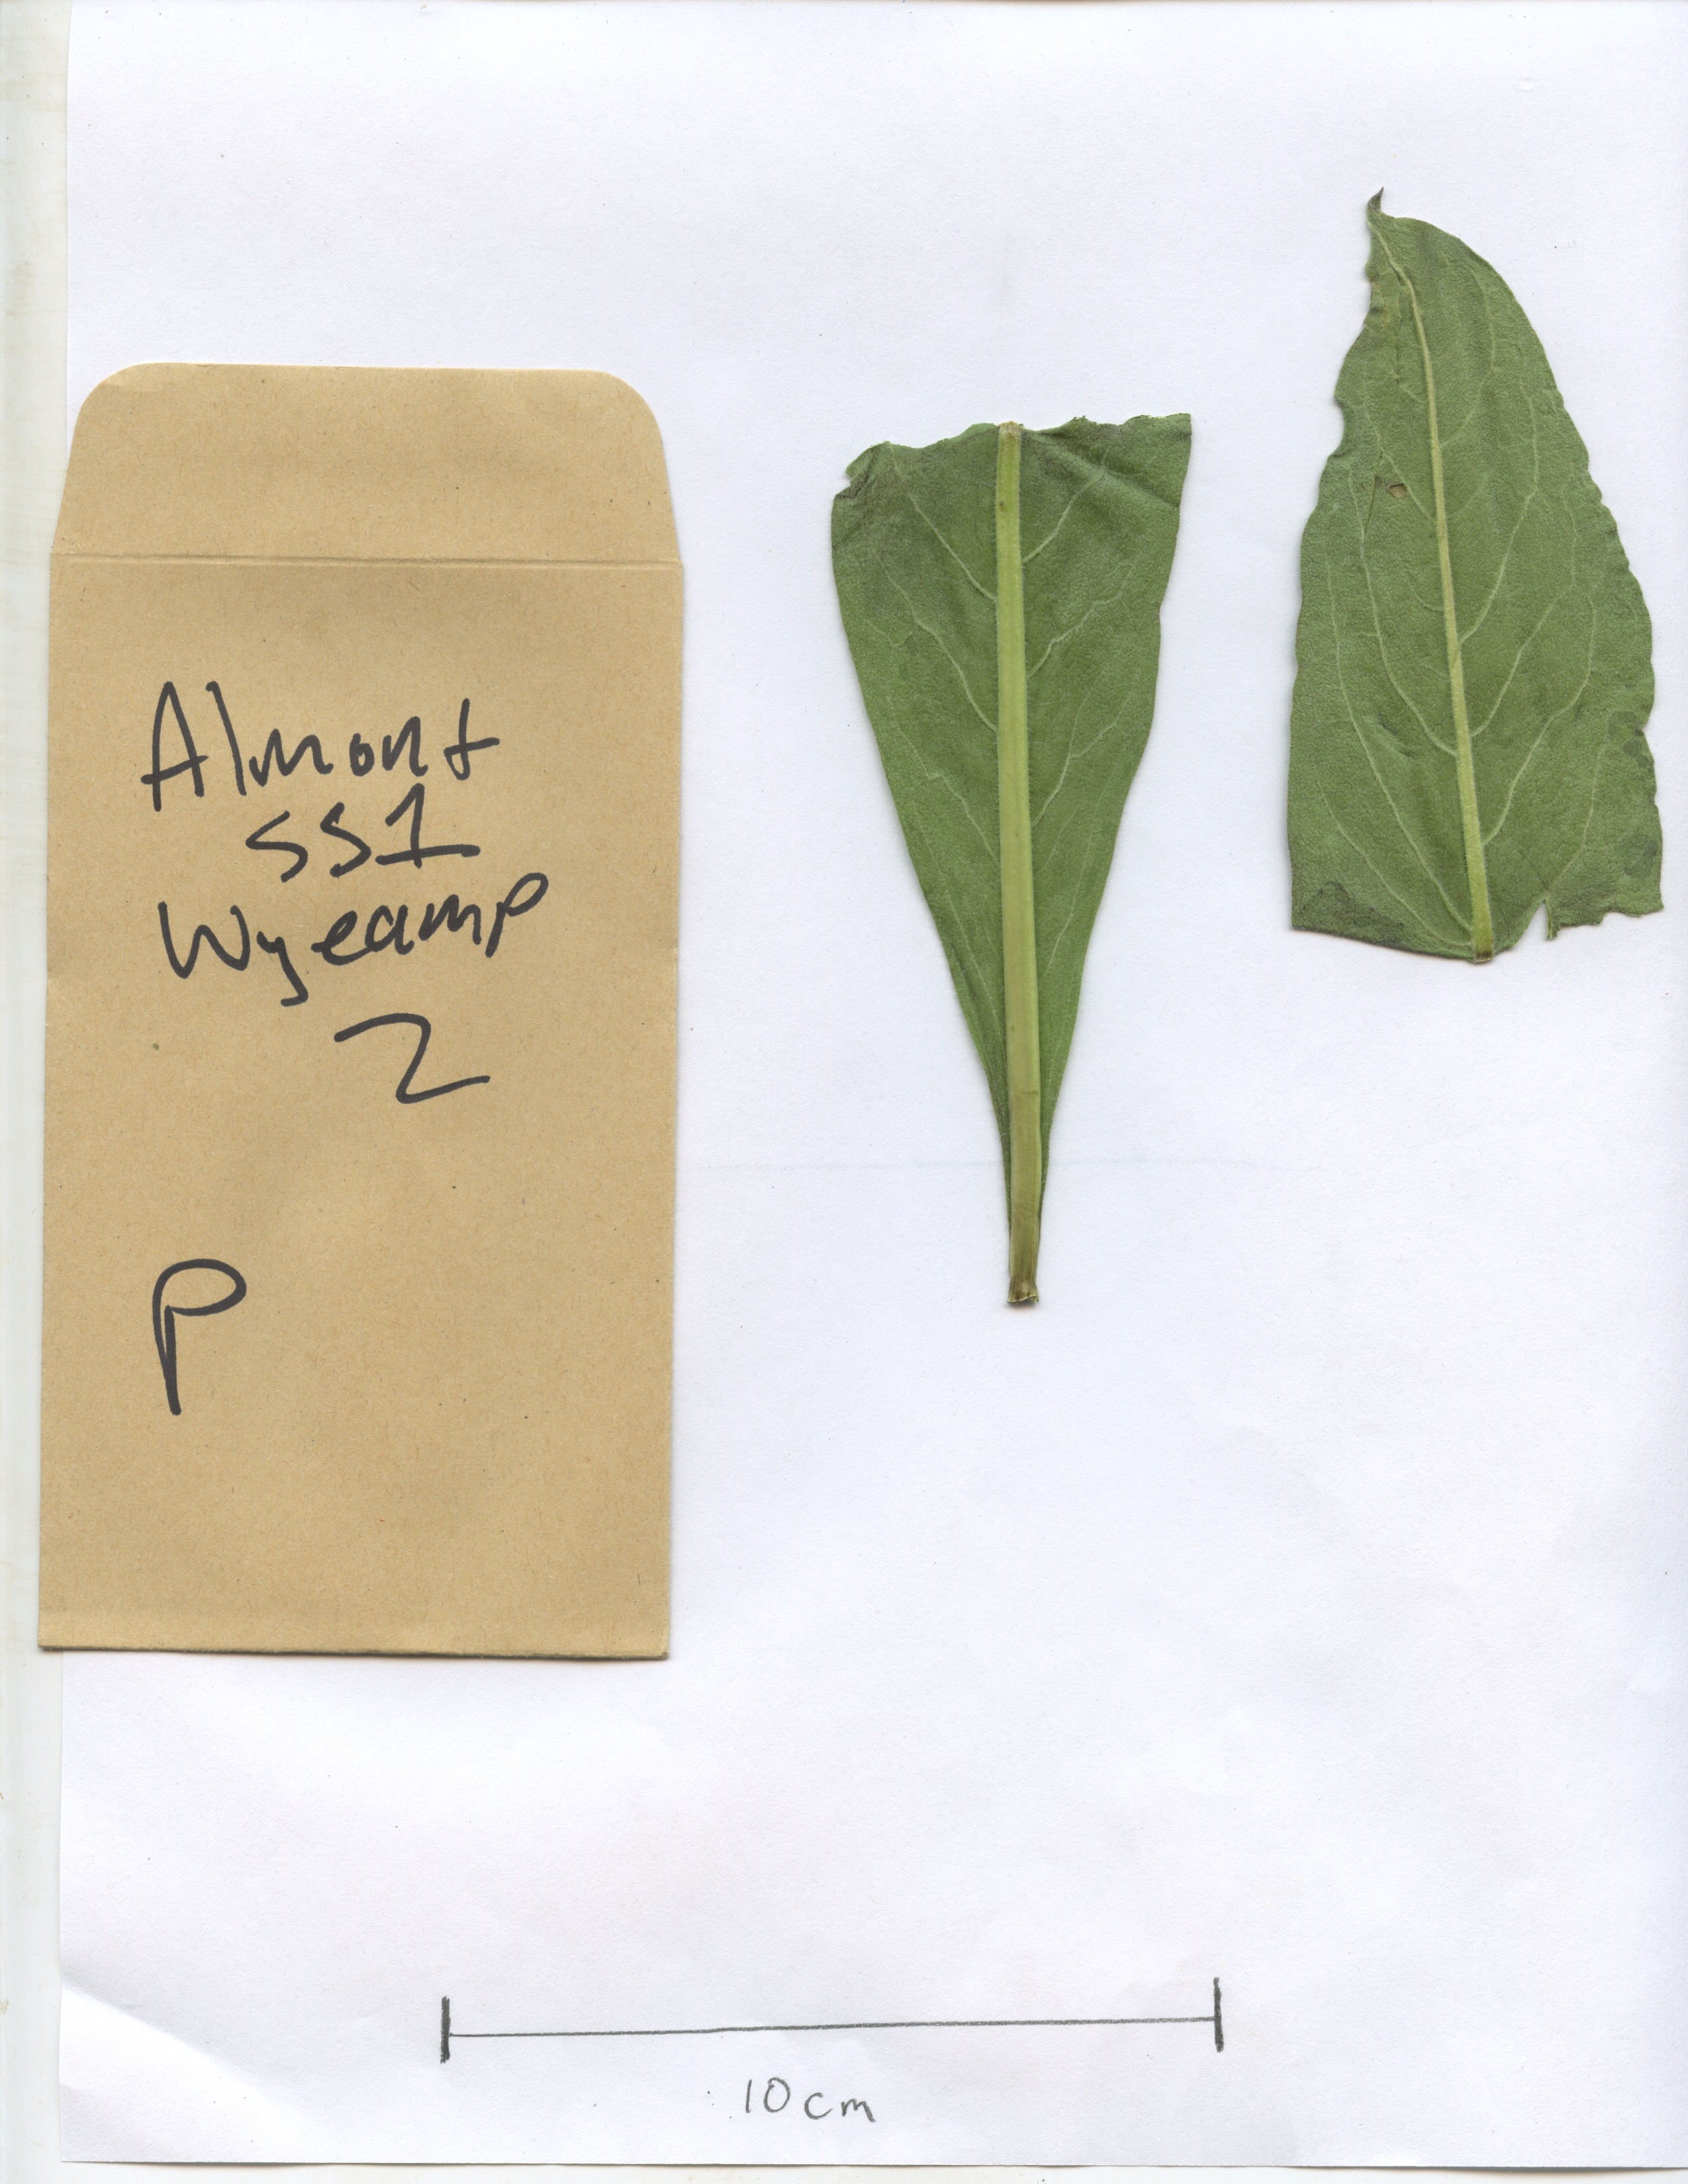 Almont
SS1
Wyeamp
2
P
10cm